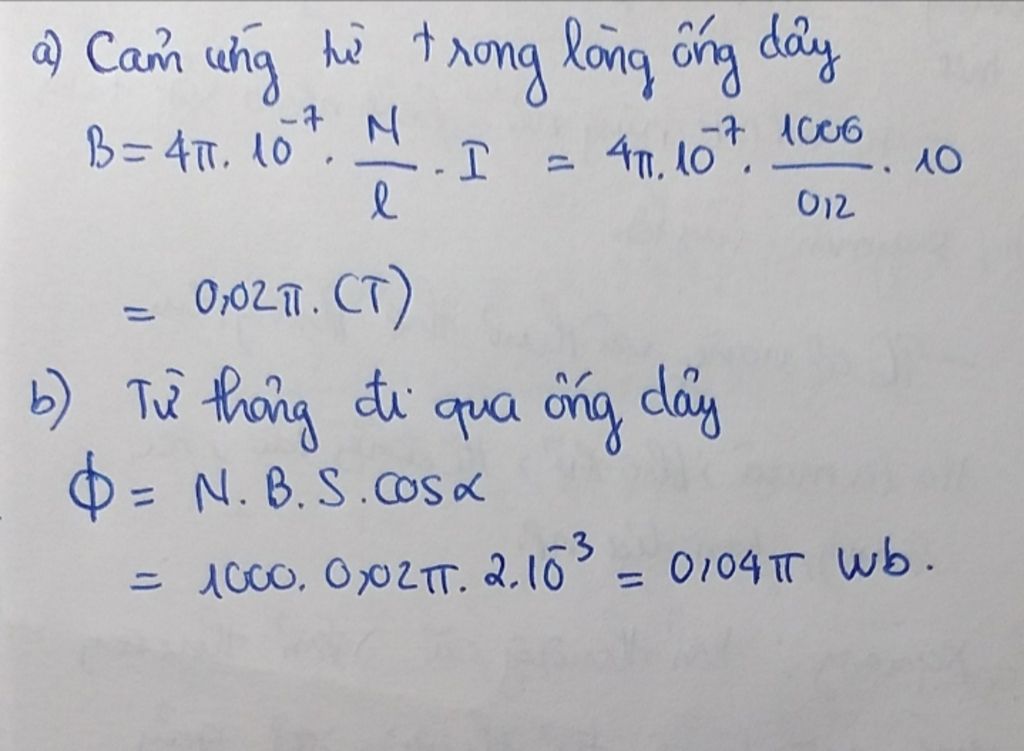 a) Cảm ứng từ trong lòng ống dây
B = 4π. 10⁻⁷. N/l . I = 4π. 10⁻⁷. 1000/0,2 . 10
= 0,02π. (T)
b) Từ thông đi qua ống dây
Φ = N. B. S. cosα
= 1000. 0,02π. 2.10⁻³ = 0,04π Wb.